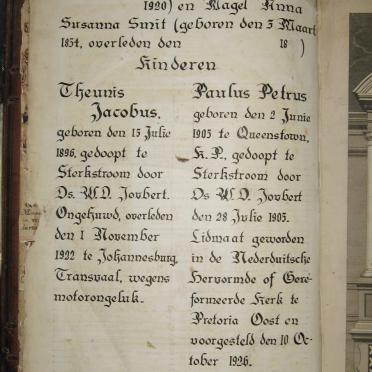 1920) en Magel Anna
Susanna Smit (geboren den 3 Maart
1854, overleden den 18 )
Kinderen
Theunis
Jacobus,
geboren den 15 Julie
1896, gedoopt te
Sterkstroom door
Ds. W.D. Joubert.
Ongehuwd, overleden
den 1 November
1922 te Johannesburg,
Transvaal, wegens
motorongeluk.
Paulus Petrus
geboren den 2 Junie
1905 te Queenstown,
K.P., gedoopt te
Sterkstroom door
Ds W.D. Joubert
den 28 Julie 1905.
Lidmaat geworden
in de Nederduitsche
Hervormde of Gere-
formeerde Kerk te
Pretoria Oost en
voorgesteld den 10 Oc-
tober 1926.